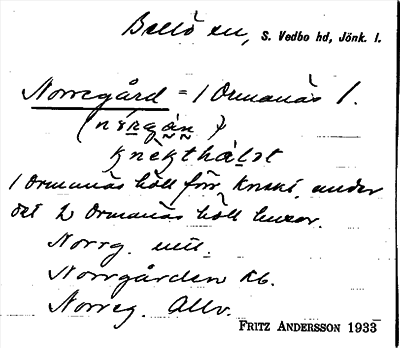 Bellö sn, S. Vedbo hd, Jönk. l.
Norregård = 1 Ormanäs 1.
1 Ormanäs höll förr knekt, under
det 2 Ormanäs höll husar.
Norrg.
Norrgården Kb.
Norreg. Allv.
FRITZ ANDERSSON 1933